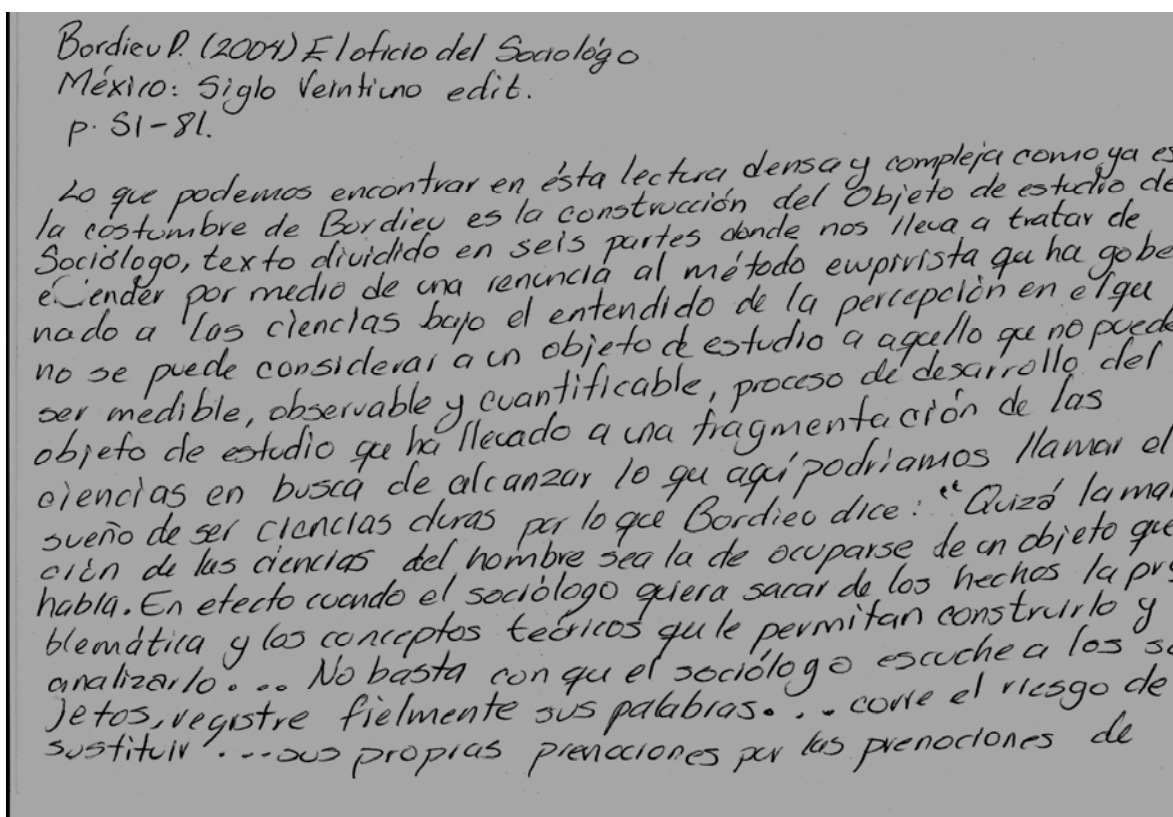 Bordieu P. (2004) El oficio del Sociológo
México: Siglo Veintiuno edit.
p. 51-81.
Lo que podemos encontrar en ésta lectura densa y compleja como ya es
la costumbre de Bordieu es la construcción del Objeto de estudio de
Sociólogo, texto dividido en seis partes donde nos lleva a tratar de
por medio de una renuncia al método empirista qu ha gobe
nado a las ciencias bajo el entendido de la percepción en el qu
no se puede considerar a un objeto de estudio a aquello que no puede
ser medible, observable y cuantificable, proceso de desarrollo del
objeto de estudio que ha llevado a una fragmentación de las
ciencias en busca de alcanzar lo qu aquí podriamos llamar el
sueño de ser ciencias duras por lo que Bordieu dice: "Quizá la mal
ción de las ciencias del hombre sea la de ocuparse de un objeto que
habla. En efecto cuando el sociólogo quiera sacar de los hechos la pro
blemática y los conceptos teóricos qu le permitan construirlo y
analizarlo... No basta con qu el sociólogo escuche a los su
jetos, registre fielmente sus palabras... corre el riesgo de
sustituir ... sus propias prenociones por las prenociones de